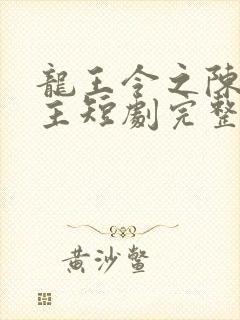 龍王令之陳
王短劇完整
黄沙鳖